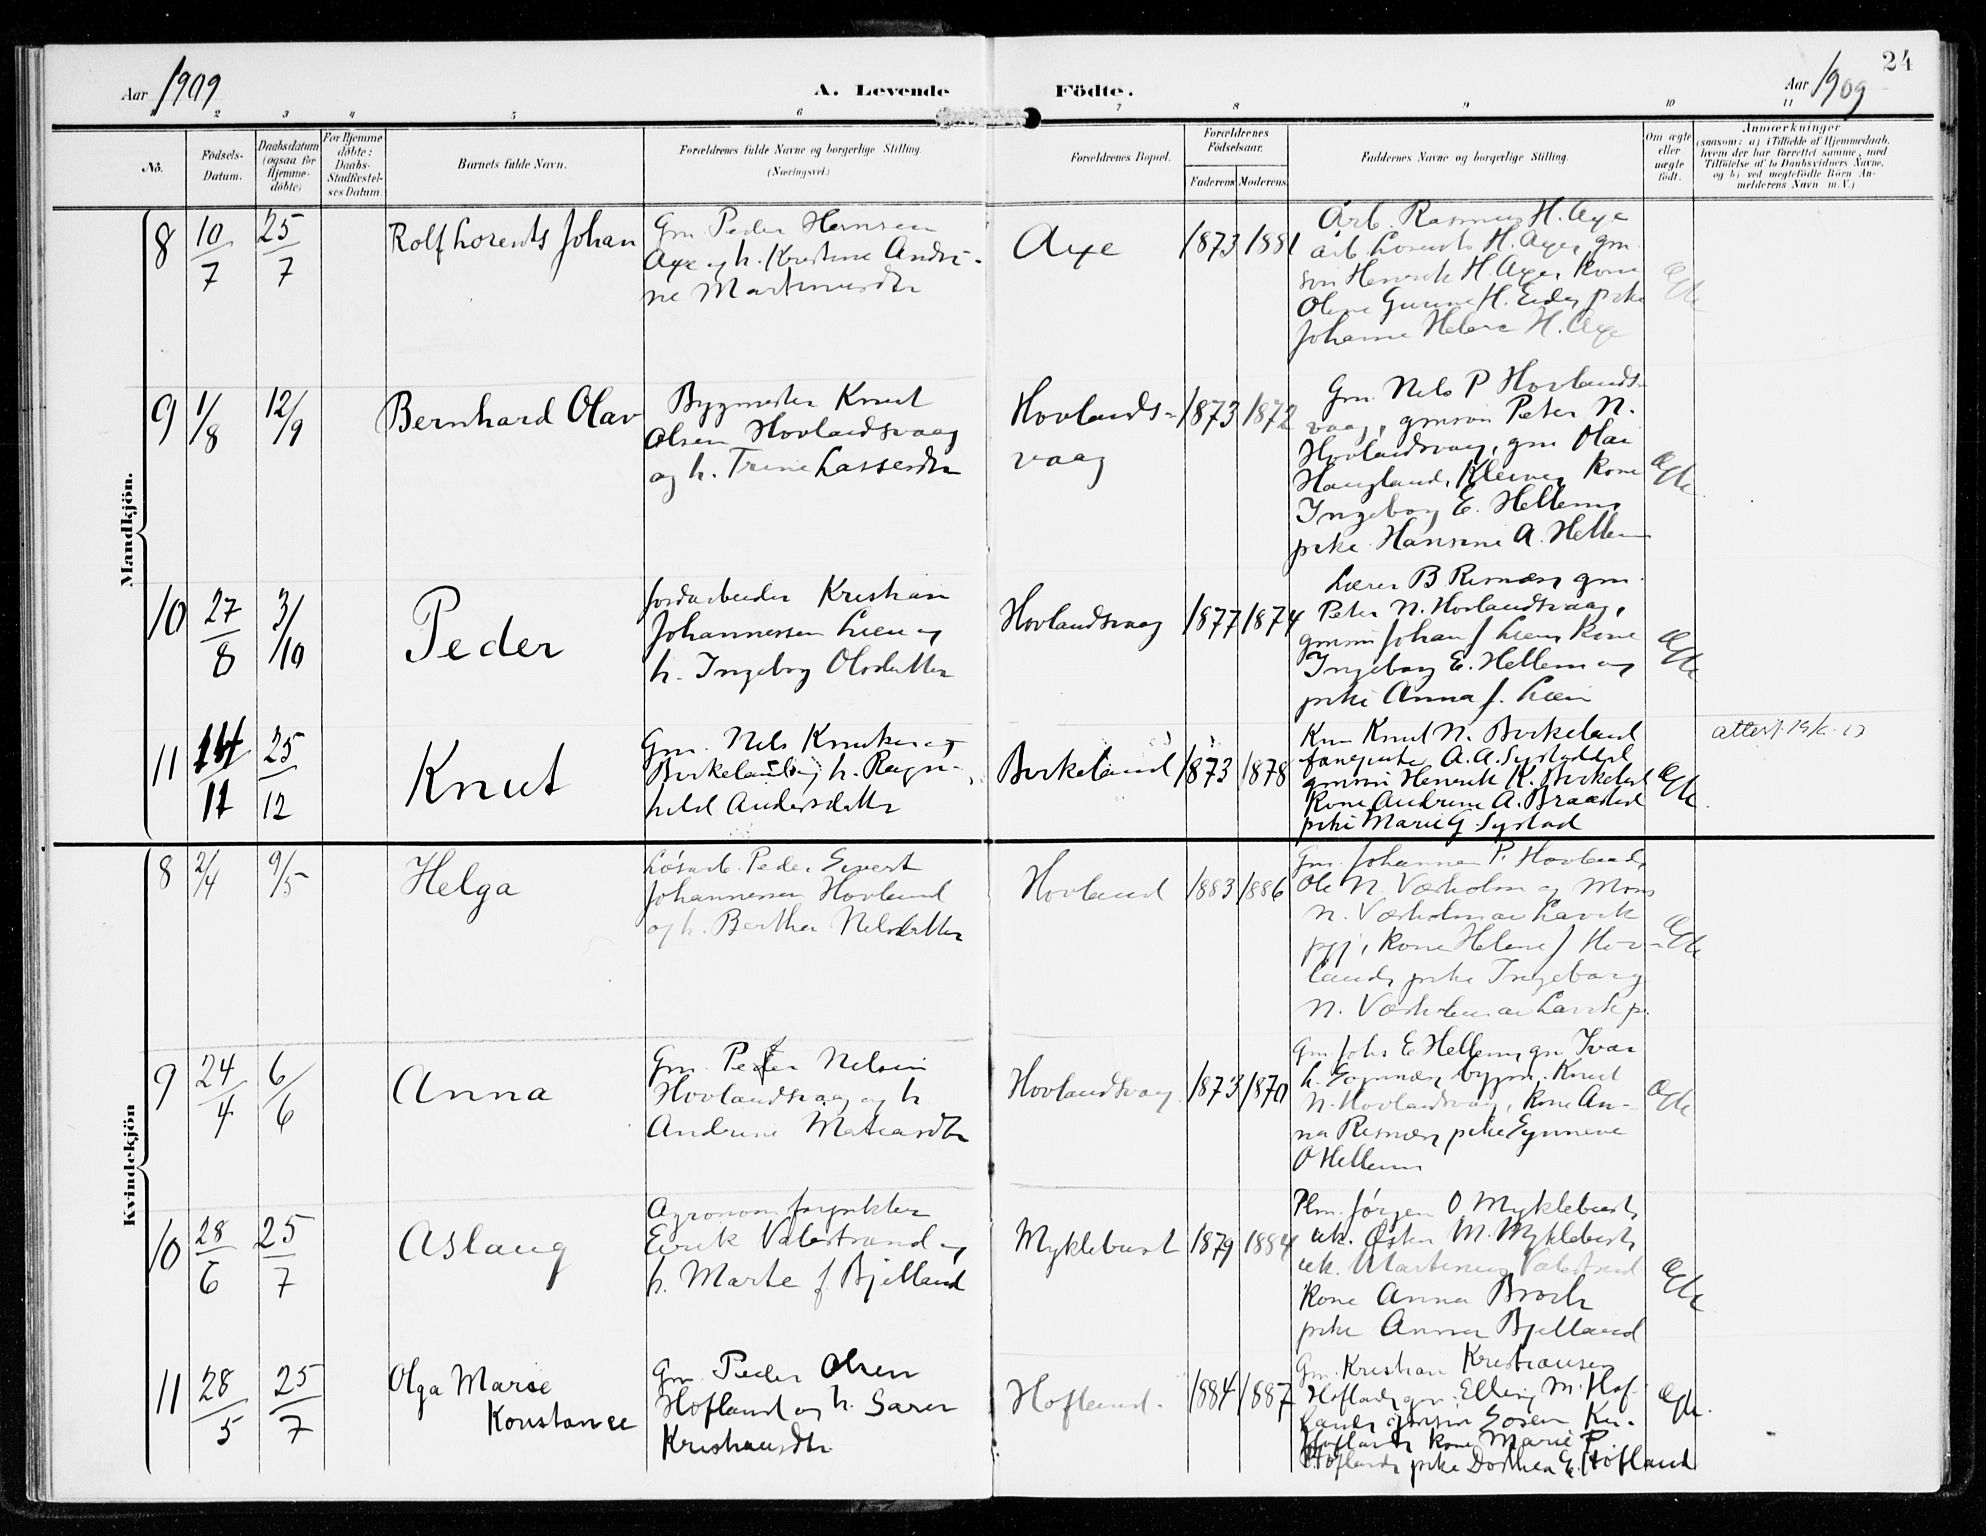 24
Aar 1909
A. Levende Födte.
Aar 1909
1 2 3 4 5 6 7 8 9 10 11
No.
Födsels-
Datum.
Daabsdatum
(ogsaa for
Hjemme-
döbte)
For Hjemme
döbte:
Daabs-
Stadfæstel-
ses Datum.
Barnets fulde Navn.
Forældrenes fulde Navne og borgerlige Stilling.
(Næringsvei.)
Forældrenes Bopæl.
Forældrenes
Födselsaar.
Faderens Moderens
Faddernes Navne og borgerlige Stilling.
Om ægte
eller
uægte
født.
Anmærkninger
(saasom: a) i Tilfælde af Hjemmedaab,
hvem der har forrettet samme, med
Tilföielse af to Daabsvidners Navne,
og b) ved uegtefödte Börn An-
melderens Navn m. V.)
Mandkjön.
8
10/7
25/7
Rolf Lorents Johan
Gm. Peder Hansen
Axe og h. Kristine Andri-
ne Martinusdtr
Axe
1873 1881
Arb. Rasmus H. Axe
arb. Lorents H. Axe, gm
søn Henrik H. Axe, Kone
Oline Gurine H. Eide, pike
Johanne Helene H. Axe
Ægte
9
1/8
12/9
Bernhard Olav
Bygmester Knut
Olsen Hovlandsvaag
og h. Trine Lassesdtr
Hovlands-
vaag
1873 1872
Gm. Nils P Hovlands-
vaag, gmsøn Peter N.
Hovlandsvaag, gm Olai
Haugland, Kleiven, Kone
Ingeborg E. Hellem,
pike Hansine A. Hellem
Ægte
10
27/8
3/10
Peder
Jordarbeider Kristian
Johannessen Lien og
h. Ingeborg Olsdatter
Hovlandsvaag
1877 1874
Lærer B. Risnæs, gm.
Peter N. Hovlandsvaag,
gmsøn Johan J. Lien, Kone
Ingeborg E. Hellem og
pike Anna J. Lien
Ægte
11
14/11
25/12
Knut
Gm. Nils Knutsen
Birkeland og h. Ragn-
hild Andersdatter
Birkeland
1873 1878
Knut N. Birkeland
A. A. Systaddal
gmsøn Henrik K. Birkeland
Kone Andrine A. Braastad
pike Marie G. Systad
Ægte
attest
Kvindekjön
8
2/4
9/5
Helga
Løsarb. Peder Sivert
Johannessen Hovland
og h. Berthe Nilsdatter
Hovland
1883 1886
Gm. Johannes P. Hovland,
Ole N. Værholm og Mons
N. Værholm av Lavik
pgj, Kone Helene J. Hov-
land, pike Ingeborg
N. Værholm av Lavik p.
Ægte
9
24/4
6/6
Anna
Gm. Peter Nelsen
Hovlandsvaag og h
Andrine Matiasdtr
Hovlandsvaag
1873 1870
Gm. Johs E. Hellem, gm. Ivar
L. Sognnæs, bygm. Knut
N. Hovlandsvaag, Kone An-
na Risnæs, pike Synneve
O Hellem
Ægte
10
28/6
25/7
Aslaug
Agronom
Eirik Valestrand og
h. Marte f. Bjelland
Myklebust
1879 1884
Jørgen O Myklebust,
uk. Østen M. Myklebust,
uk. Martinus Valestrand
Kone Anna Broch
pike Anna Bjelland
Ægte
11
28/5
25/7
Olga Marie
Konstance
Gm. Peder Olsen
Hofland og h. Sara
Kristiansdtr
Hofland.
1884 1887
Gm. Kristian Kristiansen
Hofland, gm. Elling M. Hof-
land, gmsøn Søren Kr.
Hofland, kone Marie P.
Hofland, pike Dorthea E. Hofland
Ægte.